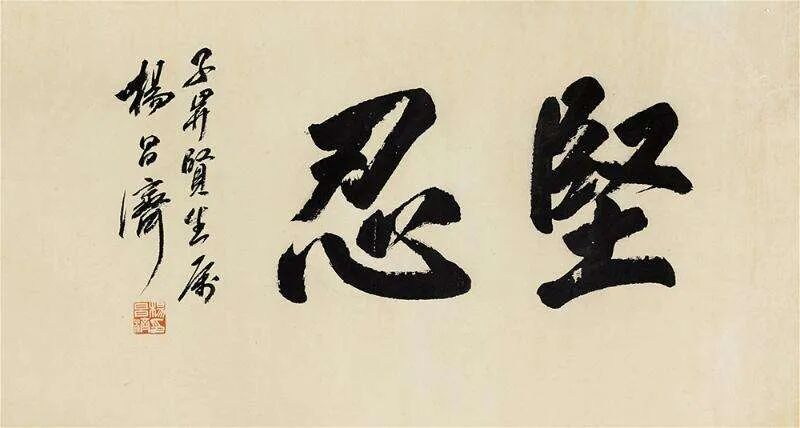 堅忍
子昇賢生属
楊昌濟
楊印昌濟